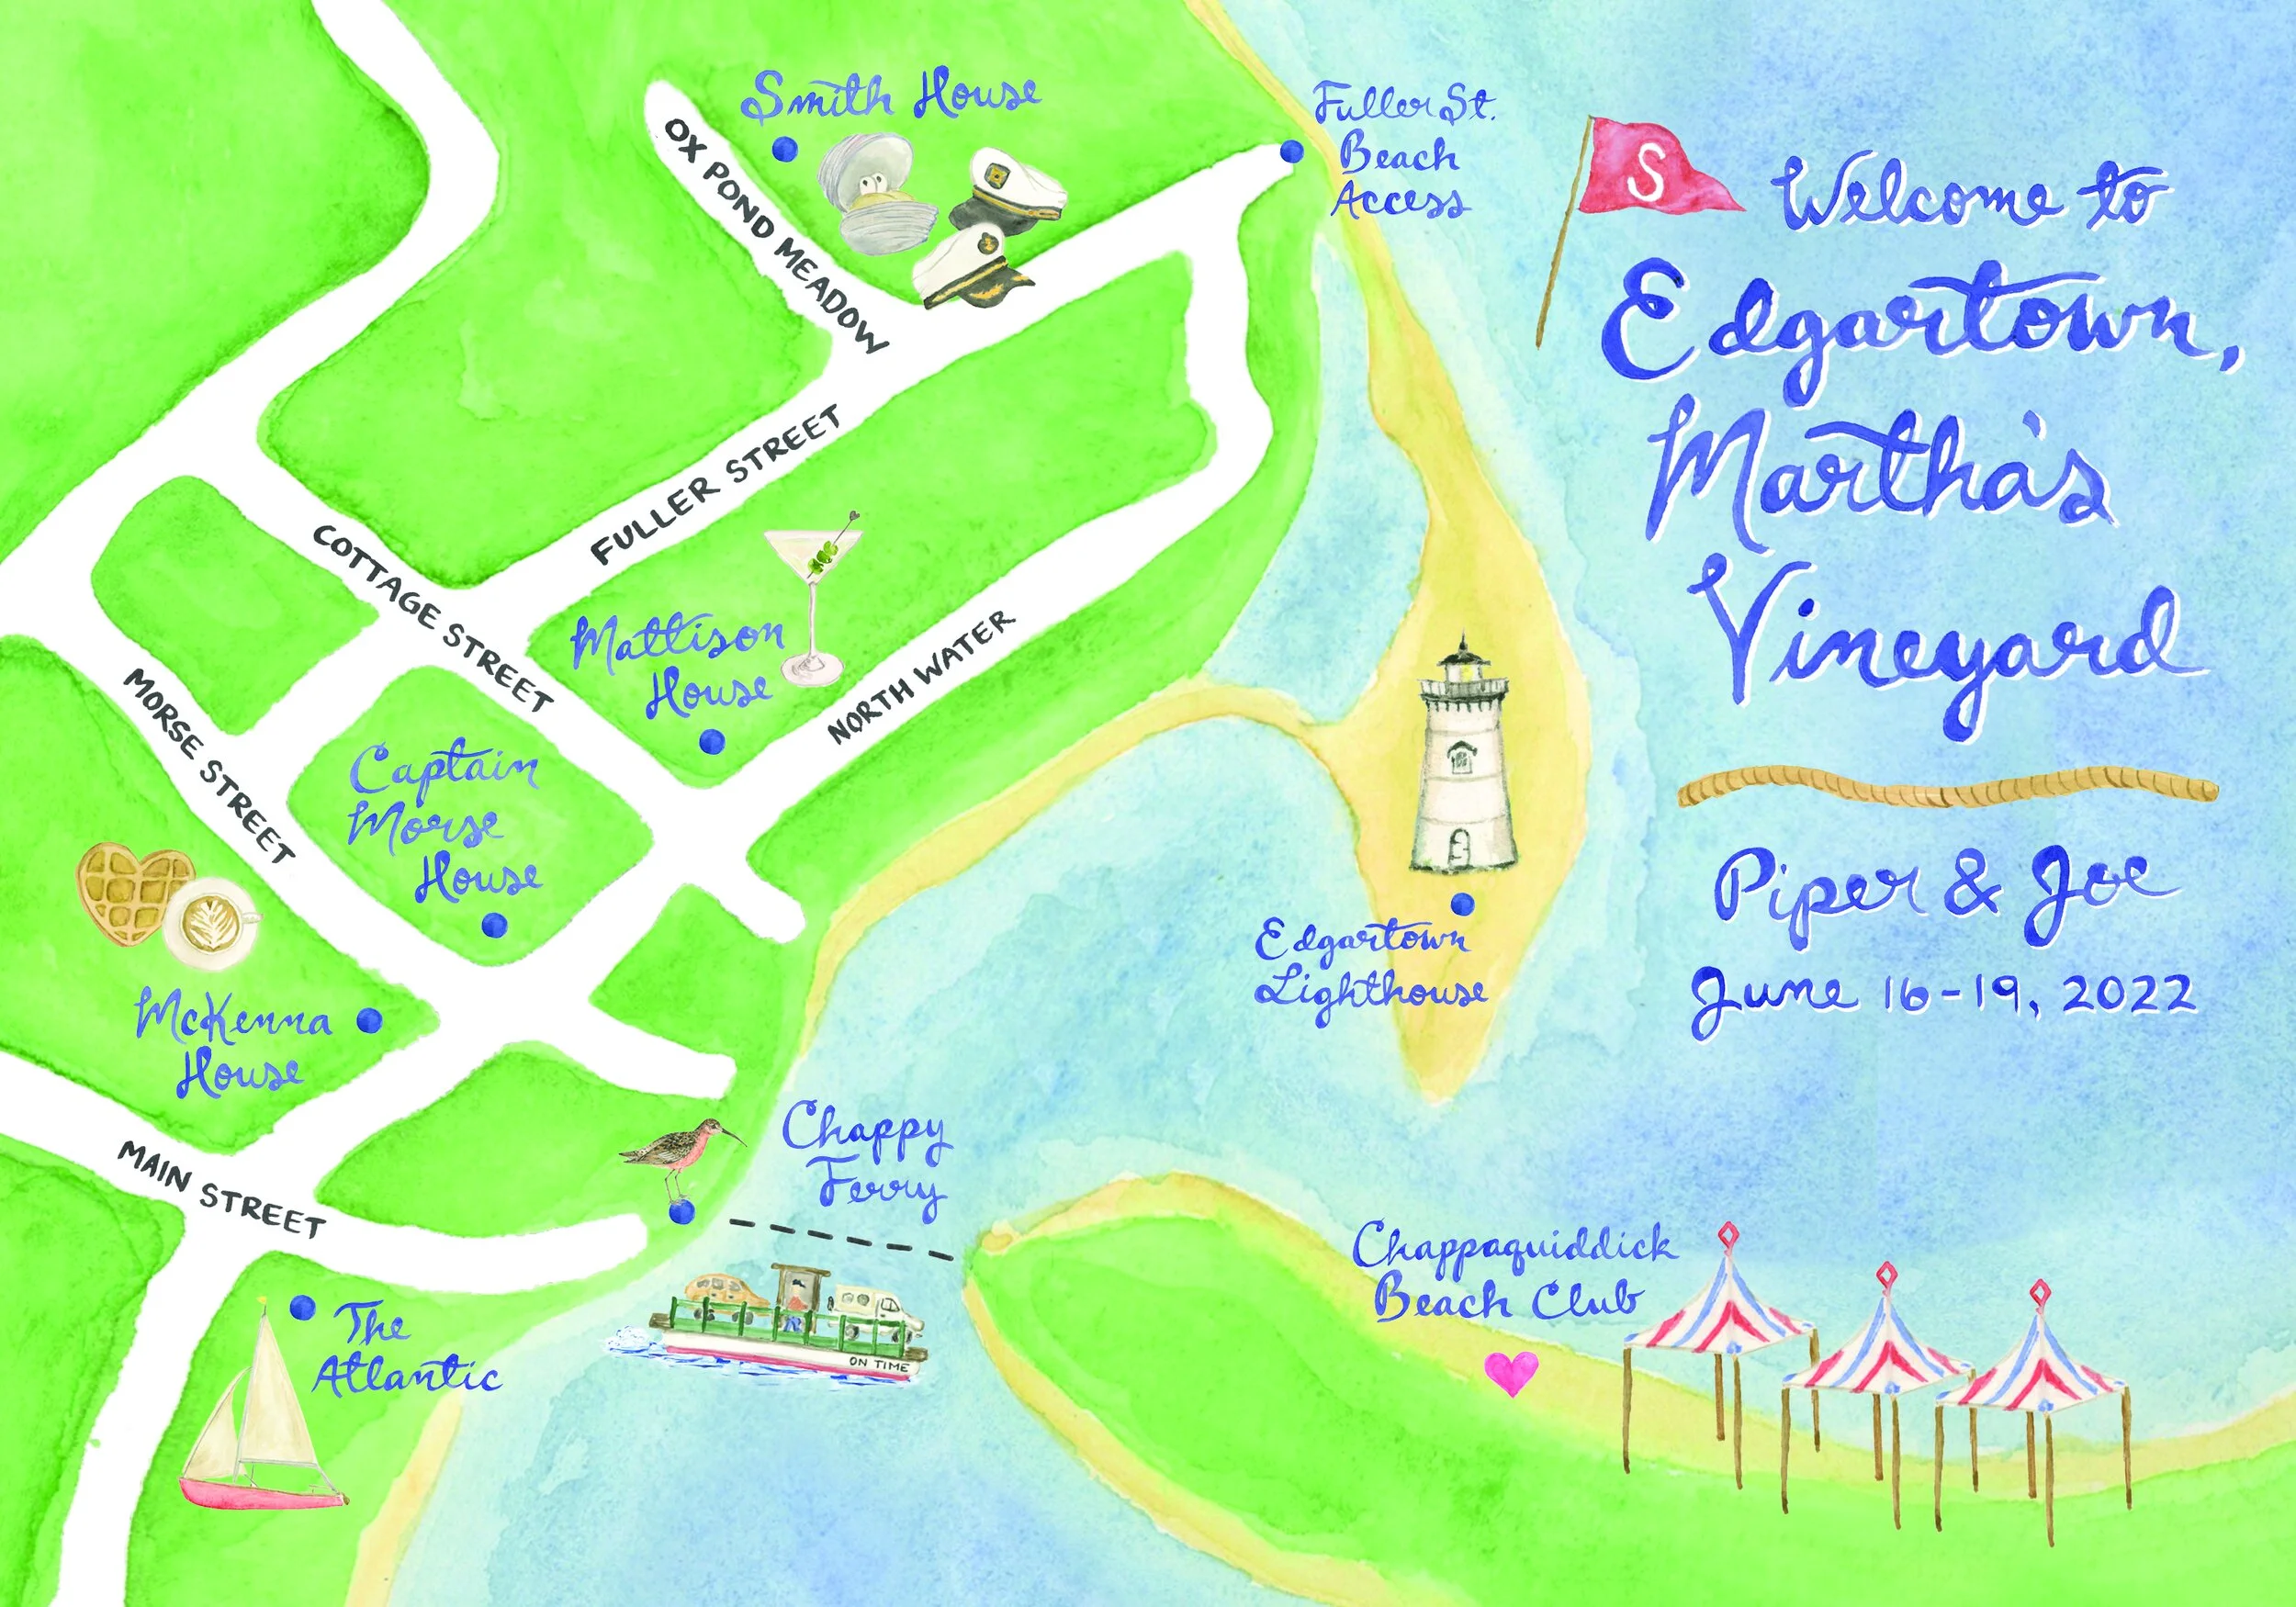 Smith House
OX POND MEADOW
Fuller St.
Beach
Access
S
Welcome to
Edgartown,
Martha's
Vineyard
FULLER STREET
COTTAGE STREET
Mattison
House
NORTH WATER
MORSE STREET
Captain
Morse
House
McKenna
House
Edgartown
Lighthouse
Piper & Joe
June 16-19, 2022
MAIN STREET
Chappy
Ferry
ON TIME
The
Atlantic
Chappaquiddick
Beach Club